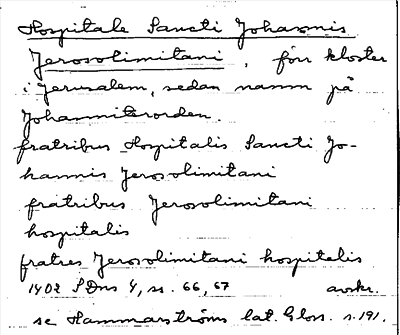 Hospitale Sancti Johannis
Jerosolimitani, förr kloster
i Jerusalem, sedan namn på
Johanniterorden.
fratribus Hospitalis Sancti Jo-
hannis Jerosolimitani
fratribus Jerosolimitani
hospitalis
fratres Jerosolimitani hospitalis
1402 SDns 1, ss. 66, 67 avskr.
se Hammarströms lat. Glos. s. 191.